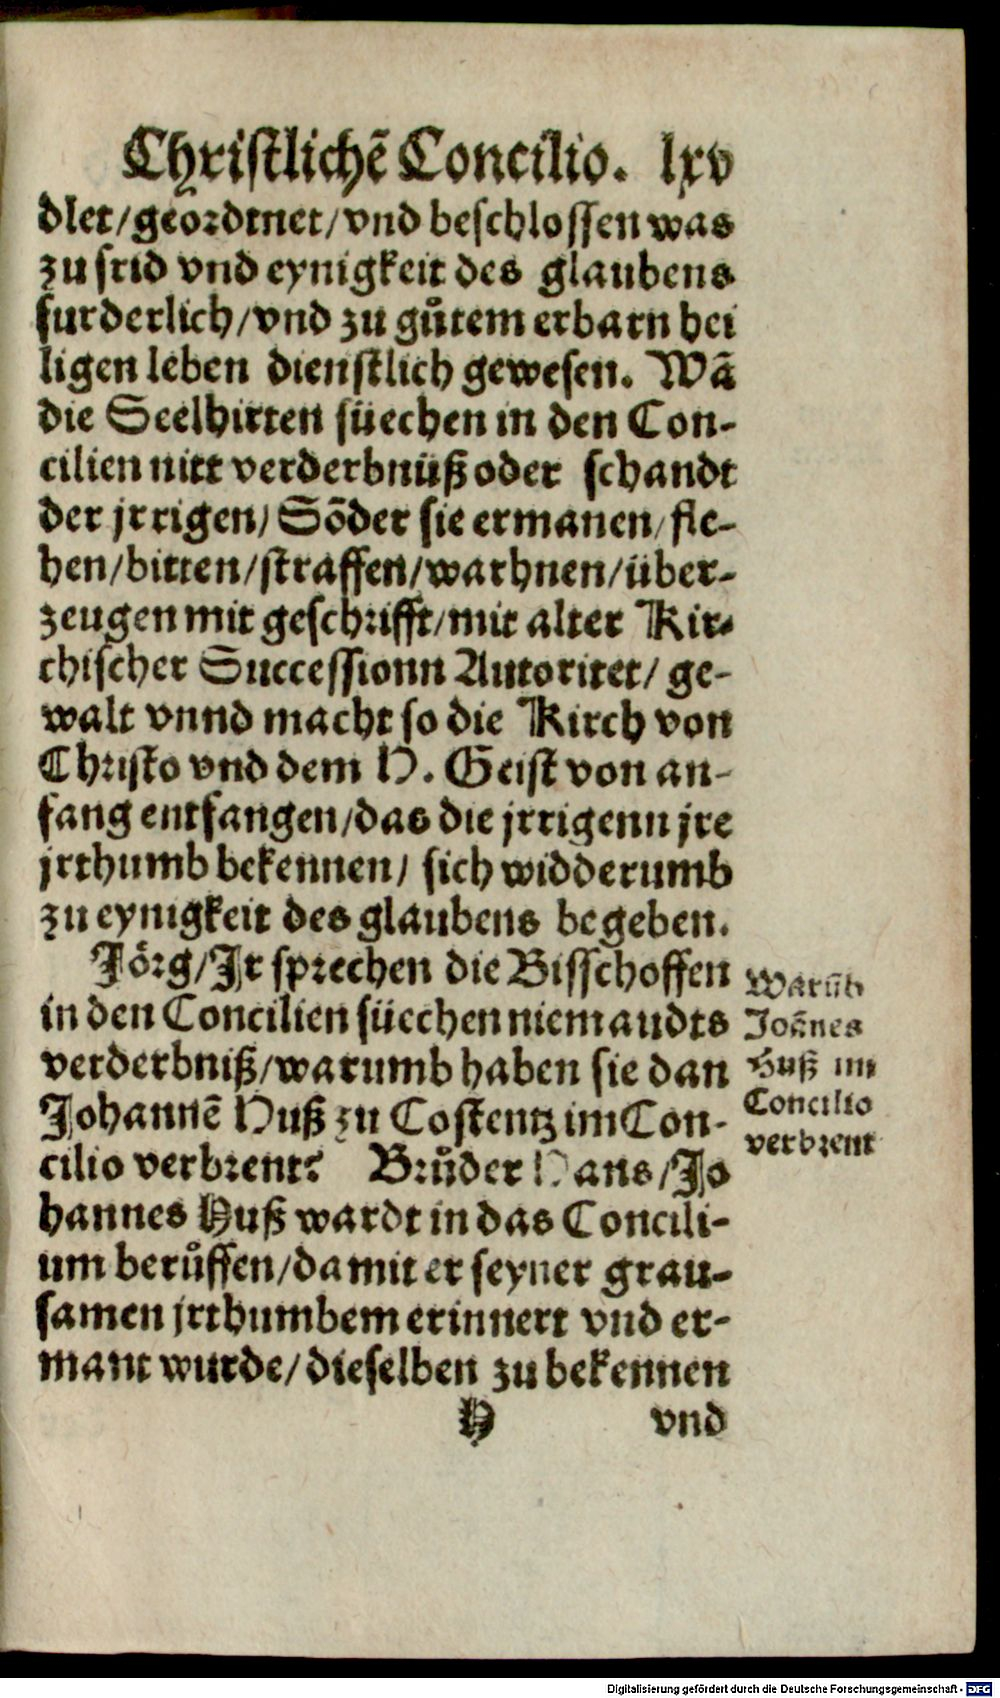 Christlichẽ Concilio. lxv
dlet/geordtnet/vnd beschlossen was
zu frid vnd eynigkeit des glaubens
furderlich/vnd zu gůtem erbarn hei
ligen leben dienstlich gewesen. Wã
die Seelhirten süechen in den Con-
cilien nitt verderbnüß oder schandt
der jrrigen/Sõder sie ermanen/fle-
hen/bitten/straffen/warhnen/über-
zeugen mit geschrifft/mit alter Kir-
chischer Successionn Autoritet/ge-
walt vnnd macht so die Kirch von
Christo vnd dem H. Geist von an-
fang entfangen/das die jrrigenn jre
jrthumb bekennen/ sich widderumb
zu eynigkeit des glaubens begeben.
Jörg/Jr sprechen die Bisschoffen
in den Concilien süechen niemandts
verderbniß/warumb haben sie dan
Johannẽ Huß zu Costentz im Con-
cilio verbrent? Brůder Hans/Jo
hannes Huß wardt in das Concili-
um berůffen/damit er seyner grau-
samen jrthumbem erinnert vnd er-
mant wurde/dieselben zu bekennen
H vnd
Warũb
Joãnes
Huß im
Concilio
verbrent
Digitalisierung gefördert durch die Deutsche Forschungsgemeinschaft - DFG